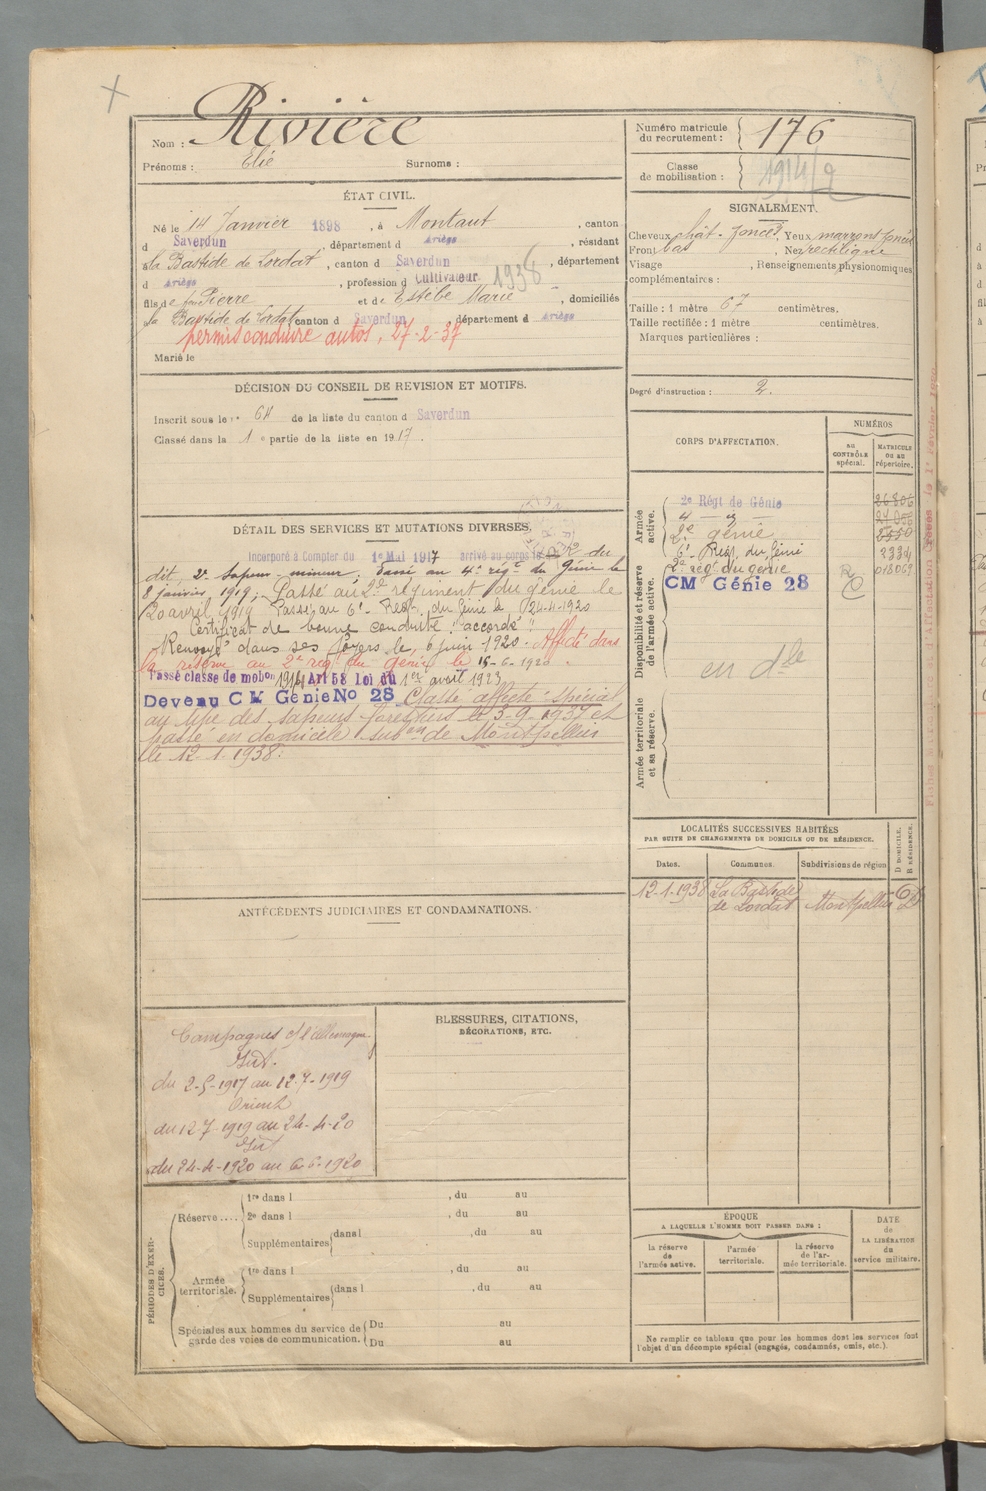 Rivière
Nom :
Prénoms : Elie Surnoms :
ÉTAT CIVIL.
Né le 14 Janvier 1898, à Montaut, canton
d Saverdun, département d Ariège, résidant
à la Bastide de Lordat, canton d Saverdun, département
d Ariège, profession d Cultivateur 1938
fils de feu Pierre et de Estèbe Marie, domiciliés
la Bastide de Lordat, canton d Saverdun, département d Ariège
permis conduire autos, 27-2-37
Marié le
DÉCISION DU CONSEIL DE REVISION ET MOTIFS.
Inscrit sous le n° 64 de la liste du canton d Saverdun
Classé dans la 1 e partie de la liste en 1917.
DÉTAIL DES SERVICES ET MUTATIONS DIVERSES.
Incorporé à Compter du 1er Mai 1917 arrivé au corps le 2 du
dit, 2e sapeur-mineur; Passé au 4e régt du Génie le
8 janvier 1919; Passé au 2e régiment du génie le
20 avril 1919 Passé au 6e Regt du Génie le 24-4-1920
Certificat de bonne conduite "accordé"
Renvoyé dans ses foyers le 6 juin 1920. Affecté dans
la réserve au 2e regt du génie le 15-6-1920.
Passé classe de mobon 1914 Art 58 loi du 1er avril 1923
Devenu C M Génie No 28 Classé affecté spécial
au titre des sapeurs forestiers le 3-9-1937 et
passé en domicile subon de Montpellier
le 12-1-1938.
ANTÉCÉDENTS JUDICIAIRES ET CONDAMNATIONS.
Campagnes c/ l'Allemagne
Int.
du 2-5-1917 au 12-7-1919
Orient
du 12-7-1919 au 24-4-20
Int
du 24-4-1920 au 6-6-1920
BLESSURES, CITATIONS,
DÉCORATIONS, ETC.
PÉRIODES D'EXER-
CICES.
Réserve....
1re dans l , du au
2e dans l , du au
Supplémentaires dans l , du au
Armée
territoriale.
1re dans l , du au
Supplémentaires dans l , du au
Spéciales aux hommes du service de
garde des voies de communication.
Du au
Du au
Numéro matricule
du recrutement : 176
Classe
de mobilisation : 1914/2
SIGNALEMENT.
Cheveux chât-foncés, Yeux marrons foncés
Front bas, Nez rectiligne
Visage , Renseignements physionomiques
complémentaires :
Taille : 1 mètre 67 centimètres.
Taille rectifiée : 1 mètre centimètres.
Marques particulières :
Degré d'instruction : 2.
CORPS D'AFFECTATION.
NUMÉROS
AU
CONTRÔLE
spécial.
MATRICULE
OU AU
répertoire.
Armée
active.
2e Régt de Génie 26806
4 — g —
2e génie
6e Regt du génie 2334
Disponibilité et réserve
de l'armée active.
2e regt du génie 018069
CM Génie 28
en dle
Armée territoriale
et sa réserve.
LOCALITÉS SUCCESSIVES HABITÉES
PAR SUITE DE CHANGEMENTS DE DOMICILE OU DE RÉSIDENCE.
Dates. Communes. Subdivisions de région D DOMICILE. R RÉSIDENCE.
12-1-1938 La Bastide
de Lordat Montpellier D
ÉPOQUE
A LAQUELLE L'HOMME DOIT PASSER DANS :
la réserve
de
l'armée active.
l'armée
territoriale.
la réserve
de l'ar-
mée territoriale.
DATE
de
LA LIBÉRATION
du
service militaire.
Ne remplir ce tableau que pour les hommes dont les services font
l'objet d'un décompte spécial (engagés, condamnés, omis, etc.).